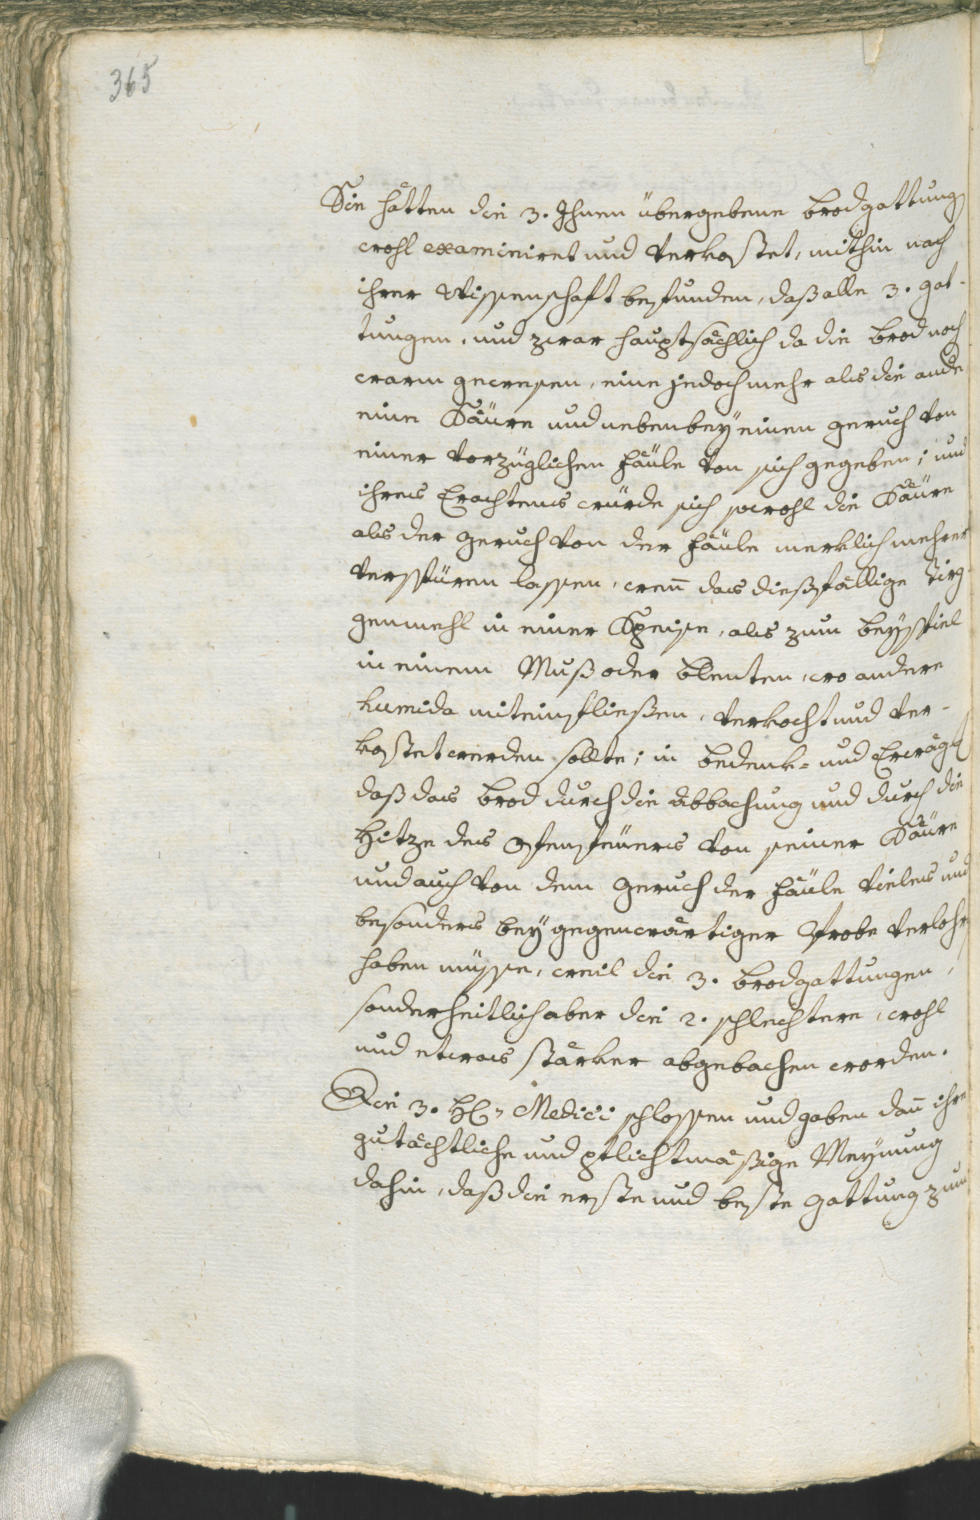 365
Sie hätten die 3. Ihnen übergebene brodgattung
wohl examiniret und verkostet, mithin nach
ihrer Wissenschaft befunden, daß alle 3. gat-
tungen, und zwar hauptsächlich da die brod noch
warm gewesen, eine jedoch mehr als die ande
eine Säure und nebenbey einen geruch von
einer vorzüglichen fäule von sich gegeben; und
ihres Erachtens würde sich sowohl die Säure
als der geruch von der fäule merklich mehrer
verspüren lassen, wen̄ das dießfällige Tirg
genmehl in einer Speise, als zum beyspiel
in einem Muß oder blenten, wo andere
humida miteinfließen, verkocht und ver-
kostet werden sollte; in bedenk- und Erwägg
daß das brod durch die abbachung und durch die
Hitze des Ofenfeuers von seiner Säure
und auch von dem geruch der fäule vieles und
besonders bey gegenwärtiger Probe verlohr
haben müsse, weil die 3. brodgattungen,
sonderheitlich aber die 2. schlechtere, wohl
und etwas stärker abgebachen worden.
Die 3. H. Medici schlossen und gaben dan̄ ihre
gutächtliche und pflichtmäßige Meynung
dahin, daß die erste und beste gattung zum